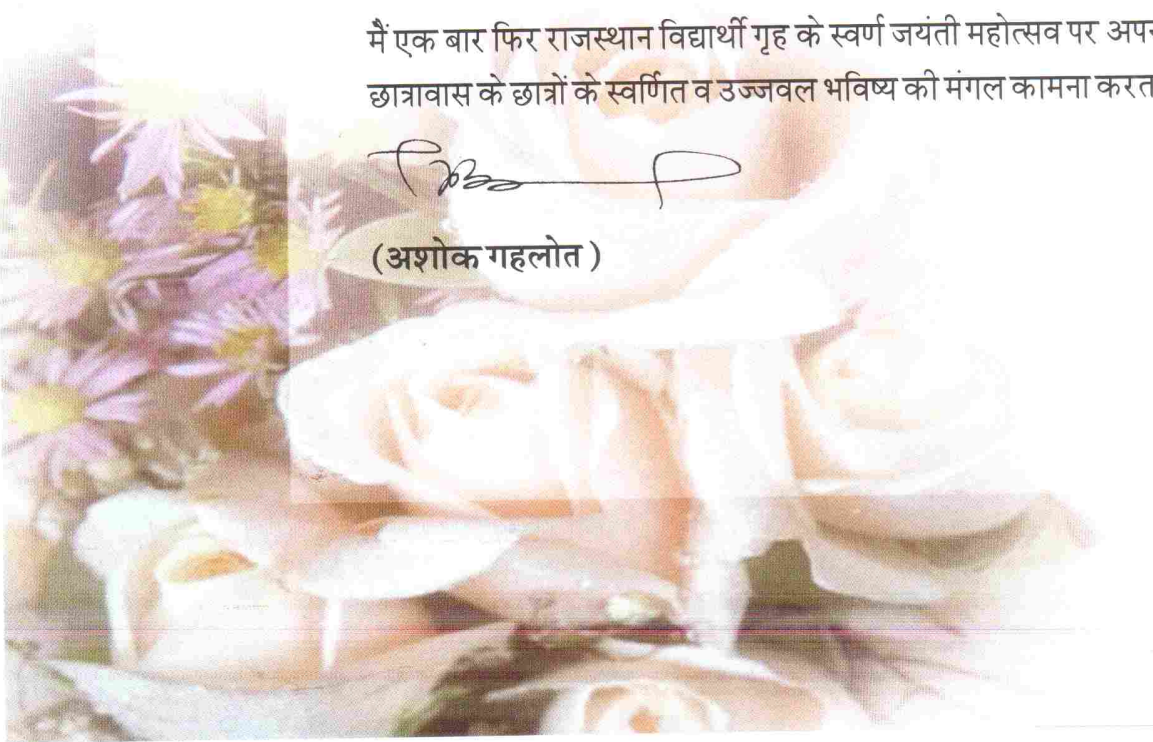 मैं एक बार फिर राजस्थान विद्यार्थी गृह के स्वर्ण जयंती महोत्सव पर
छात्रावास के छात्रों के स्वर्णित व उज्जवल भविष्य की मंगल कामना
(अशोक गहलोत )